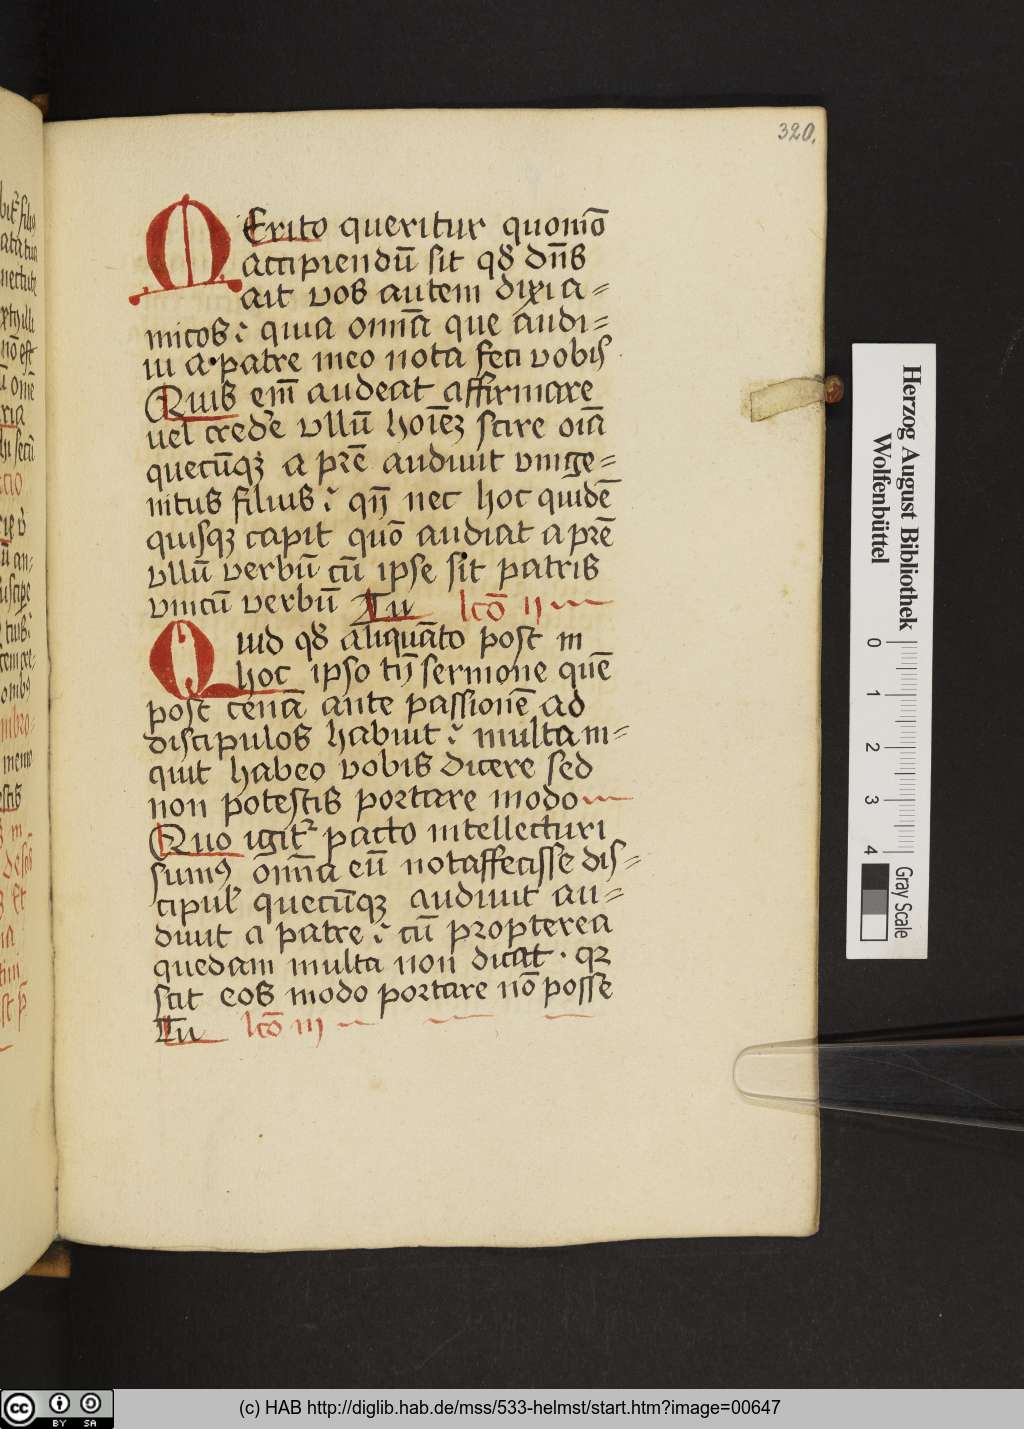 320.
MErito queritur quomō
accipiendū sit qđ dn̄s
ait vos autem dixi a=
micos: quia om̄ia que audi=
ui a patre meo nota feci vobis
Quis em̄ audeat affirmare
vel credēe vllū hoīeꝫ scire oīa
quecūqꝫ a prē audiuit vnige=
nitus filius: qn̄ nec hoc quidē
quisqꝫ capit quō audiat a prē
vllū verbū cū ipse sit patris
vnicū verbū Tu lcō ij
Quid qđ aliquāto post in
hoc ipso tn̄ sermone quē
post cenā ante passionē ad
discipulos habuit: multa in=
quit habeo vobis dicere sed
non potestis portare modo
Quo igitr pacto intellecturi
sumꝰ om̄ia eū nota fecisse dis=
cipul' quecūqꝫ audiuit au=
diuit a patre: cū propterea
quedam multa non dicat · qꝛ
scit eos modo portare nō posse
Tu lcō iij
Herzog August Bibliothek
Wolfenbüttel
0 1 2 3 4
Gray Scale
cc BY SA
(c) HAB http://diglib.hab.de/mss/533-helmst/start.htm?image=00647